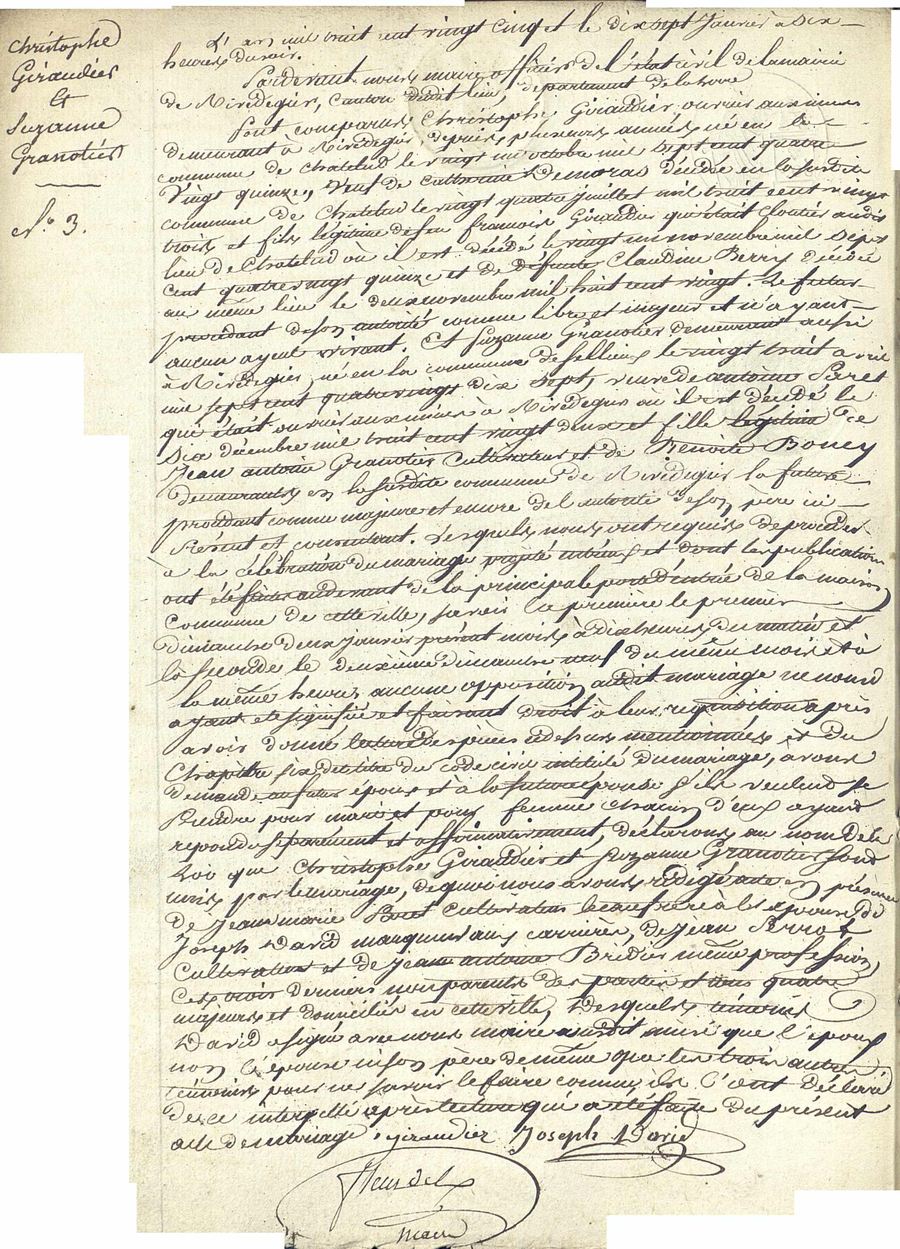 Christophe
Giraudier
Et
Suzanne
Granotier
N.° 3.
L'an mil huit cent vingt cinq et le dix sept Janvier à Six
heures du soir.
Pardevant nous maire officier de l'état civil de la mairie
de Rivedegier, canton dudit lieu, département de la Loire
Sont comparus Christophe Giraudier ouvrier aux mines
demeurant à Rivedegier depuis plusieurs années né en la
commune de Chatelud le vingt un octobre mil sept cent quatre
Vingt quinze, Veuf de Catherine Demoras décédée en la susdite
commune de Chatelud le vingt quatre juillet mil huit cent vingt
trois et fils légitime de feu François Giraudier qui était cloutier audit
lieu de Chatelud où il est décédé le vingt un novembre mil sept
cent quatre vingt quinze et de défunte Claudine Berry décédée
au même lieu le deux novembre mil huit cent vingt. Le futur
procédant de son autorité comme libre et majeur et n'ayant
aucun ayeul vivant. Et Suzanne Granotier demeurant aussi
à Rivedegier, née en la commune de le vingt huit avril
mil sept cent quatre vingt dix sept, veuve de antoine Peret
qui était ouvrier aux mines à Rivedegier où il est décédé le
Six décembre mil huit cent vingt deux et fille légitime de
Jean antoine Granotier Cultivateur et de Benoite Boney
demeurants en la susdite commune de Rivedegier la future
procédant comme majeure et encore de l'autorité de son père ici
Présent et consentant. Lesquels nous ont requis de procéder
à la célébration du mariage projeté entre eux et dont les publications
ont été faites au devant de la principale porte d'entrée de la maison
commune de cette ville, savoir la première le premier
dimanche deux janvier présent mois à dix heures du matin et
la seconde le deuxième dimanche neuf du même mois et à
la même heure aucune opposition audit mariage ne nous
ayant été signifiée et faisant droit à leur réquisition après
avoir donné lecture des pièces ci dessus mentionnées et du
Chapitre six du titre du code civil intitulé du mariage, avons
demandé au futur époux et à la future épouse s'ils veulent se
Prendre pour mari et pour femme chacun d'eux ayant
répondu séparément et affirmativement, déclarons au nom de la
Loi que Christophe Giraudier et Suzanne Granotier sont
unis par le mariage, de quoi nous avons rédigé acte en présence
de Jean marie Peret Cultivateur beaufrère à l'épouse, de
Joseph David aux carrières, de Jean Perrot
Cultivateur et de Jean antoine Bredier même profession,
Ces trois derniers non parents des parties et tous quatre
majeurs et domiciliés en cette ville, Desquels témoins
David a signé avec nous maire susdit ainsi que l'époux
non l'épouse ni son père de même que les trois autres
témoins pour ne savoir le faire comme ils l'ont déclaré
de ce interpellé après lecture qui a été faite du présent
acte de mariage. giraudier Joseph David
fleurdelix
maire